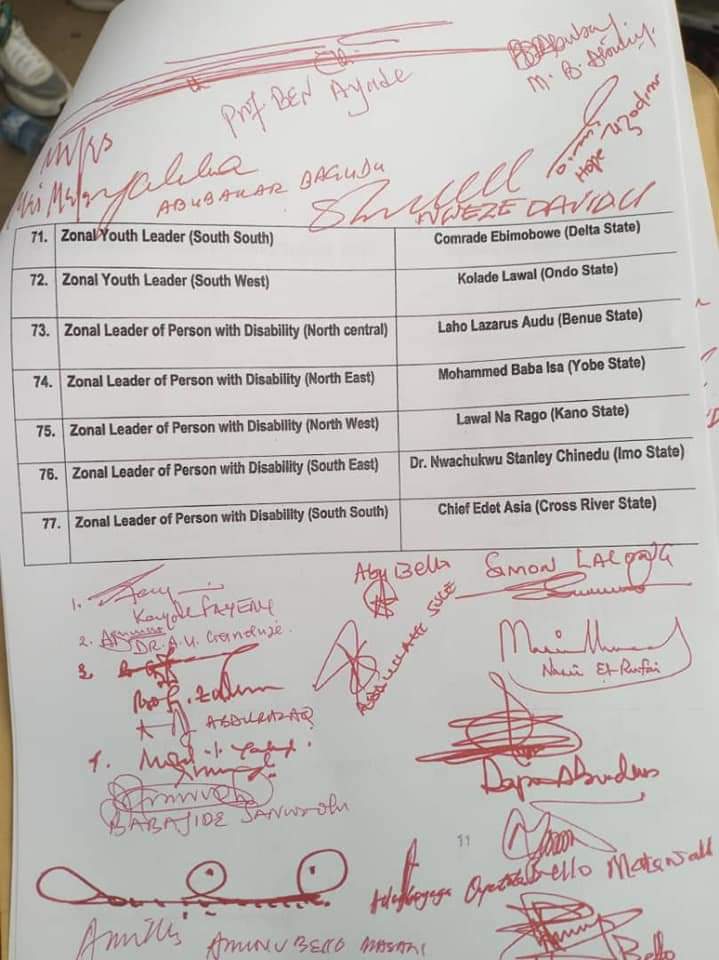 Prof BEN Ayade
M. B.
ABUBAKAR BAGUDU
Hope Uzodimma
NWEZE DAVID U
71. Zonal Youth Leader (South South) Comrade Ebimobowe (Delta State)
72. Zonal Youth Leader (South West) Kolade Lawal (Ondo State)
73. Zonal Leader of Person with Disability (North central) Laho Lazarus Audu (Benue State)
74. Zonal Leader of Person with Disability (North East) Mohammed Baba Isa (Yobe State)
75. Zonal Leader of Person with Disability (North West) Lawal Na Rago (Kano State)
76. Zonal Leader of Person with Disability (South East) Dr. Nwachukwu Stanley Chinedu (Imo State)
77. Zonal Leader of Person with Disability (South South) Chief Edet Asia (Cross River State)
1.
Kayode FAYEMI
2.
DR. A.U. Ganduje.
3.
Prof. Zulum
ABDULRAZAQ
4.
BABAJIDE SANWOOLU
Abu Bello
SIMON LALONG
ABDULLAHI SULE
Nasir El-Rufai
Dapo Abiodun
11
Adegboyega Oyetola
Bello Matawalle
AMINU BELLO MASARI
Bello